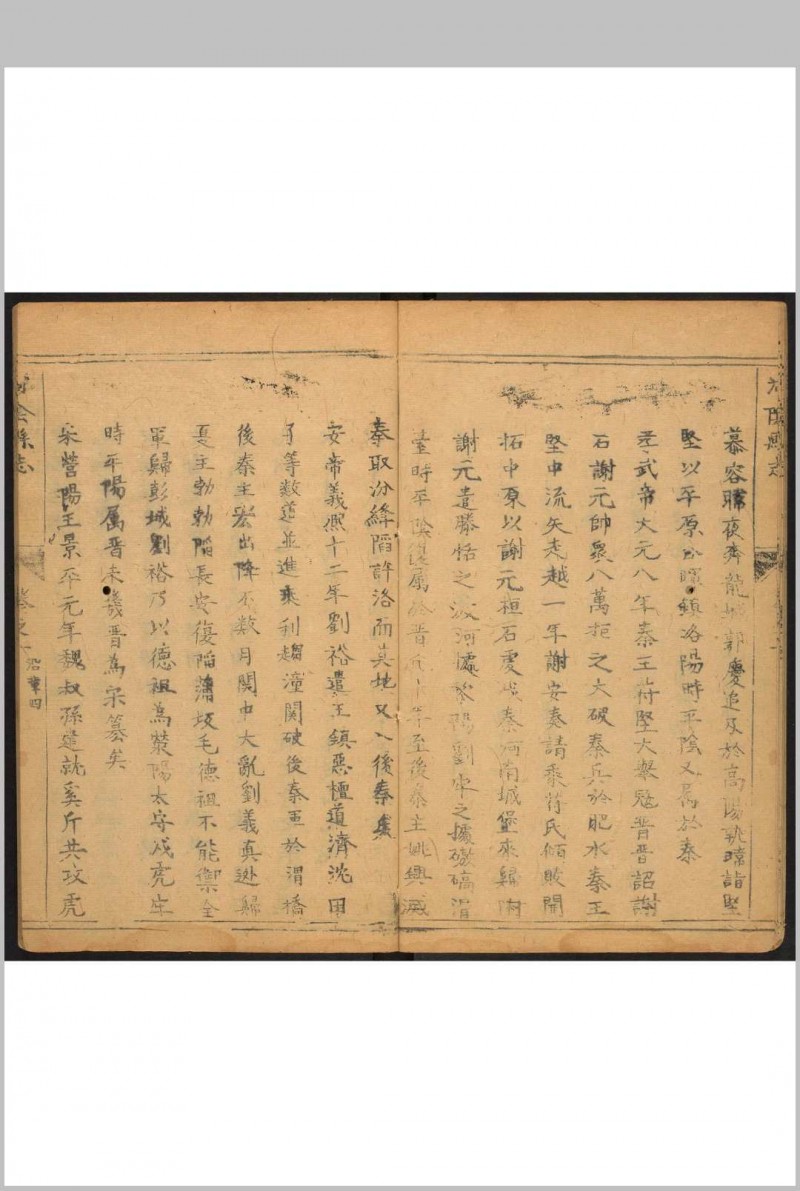 慕容暐夜奔龍城郭慶追及於高陽執暐詣堅
堅以平原公暉鎮洛陽時平陰又爲於秦
孝武帝大元八年秦王苻堅大舉寇晋晋詔謝
石謝元帥衆八萬拒之大破秦兵於肥水秦王
堅中流矢走越一年謝安奏請乘苻氏傾敗開
拓中原以謝元桓石虔伐秦河南城堡來歸附
謝元遣滕恬之渡河據黎陽劉牢之據碻磝滑
臺時平陰復属於晋 至後秦主姚興滅
秦取汾絳陷許洛而其地又入後秦矣
安帝義熙十二年劉裕遣王鎮惡檀道濟沈田
子等数道並進乘利趨潼關破後秦王於渭橋
後秦主泓出降不数月関中大亂劉義真逃歸
夏主勃勃陷長安復陷蒲坂毛德祖不能禦全
軍歸彭城劉裕乃以德祖為滎陽太守戍虎牢
時平陽属晋未幾晋為宋篡矣
宋營陽王景平元年魏叔孫建就奚斤共攻虎
陰縣志
卷之一
沿革四